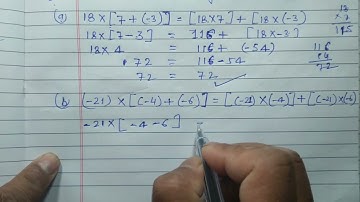 (a) 18×[7+(-3)] = [18×7]+[18×(-3)
18×[7-3] = 116 + [18×-3]
18×4 = 116 + (-54)
72 = 116-54
72 = 72
116
72
(b) (-21)×[(-4)+(-6)] = [(-21)×(-4)]+[(-21)×(-6)
-21×[-4-6] =